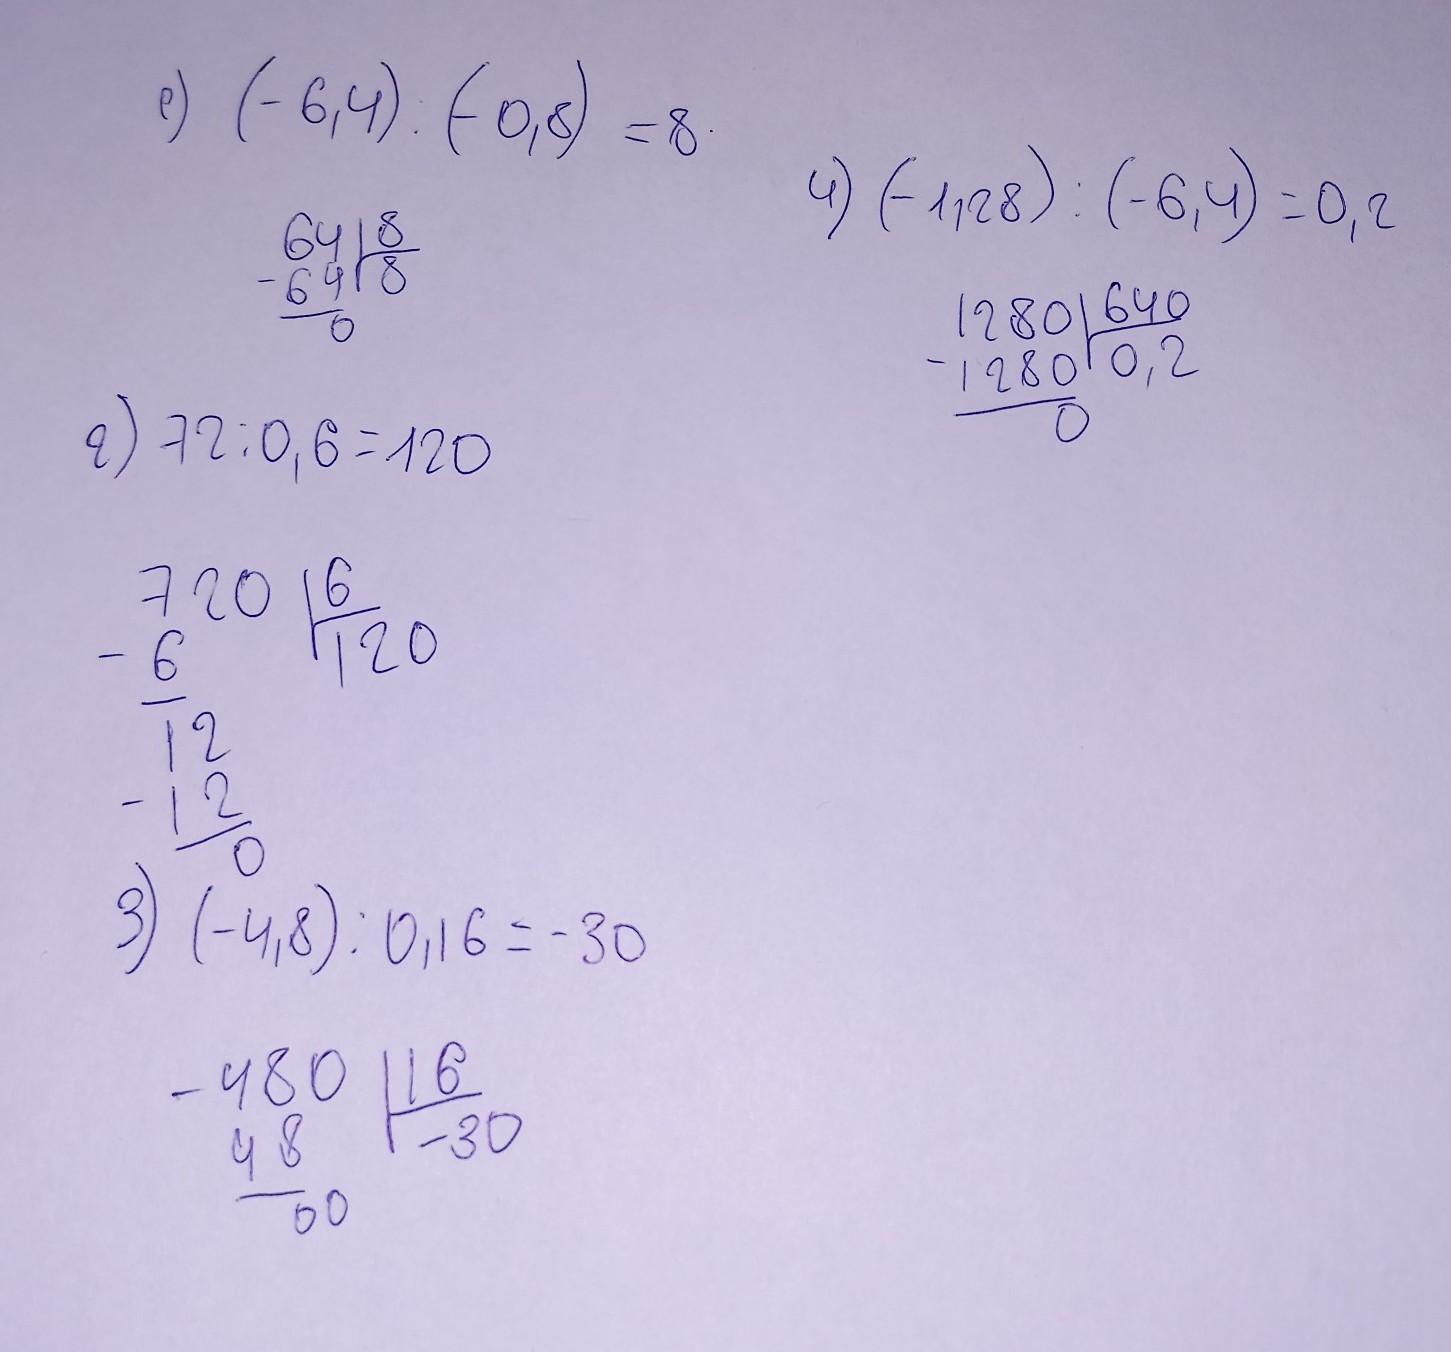 1) (-6,4) : (-0,8) = 8.
64 8
-64 8
0
2) 72:0,6=120
720 6
-6 120
12
-12
0
3) (-4,8) : 0,16 = -30
-480 16
48 -30
00
4) (-1,28) : (-6,4) = 0,2
1280 640
-1280 0,2
0